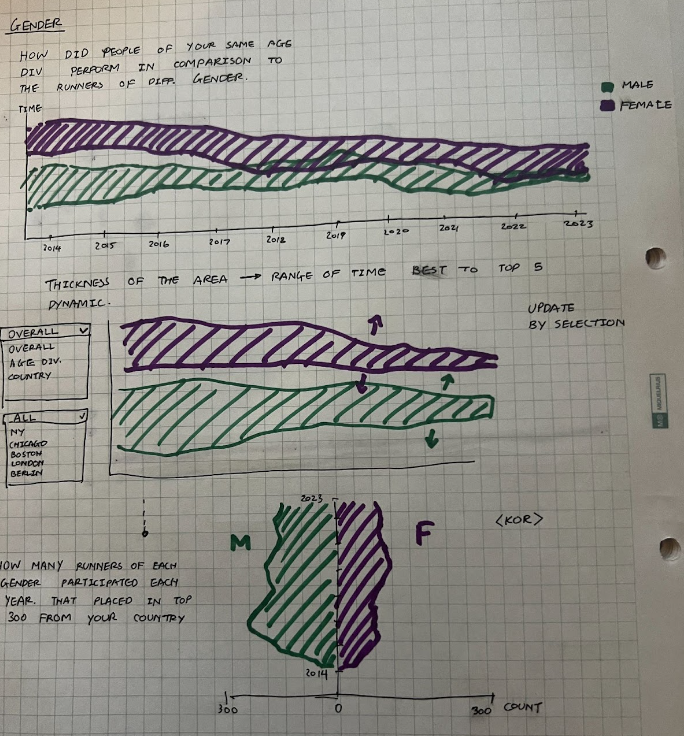 GENDER
HOW DID PEOPLE OF YOUR SAME AGE
DIV PERFORM IN COMPARISON TO
THE RUNNERS OF DIFF. GENDER.
MALE
FEMALE
TIME
2014 2015 2016 2017 2018 2019 2020 2021 2022 2023
THICKNESS OF THE AREA → RANGE OF TIME BEST TO TOP 5
DYNAMIC.
UPDATE
BY SELECTION
OVERALL
OVERALL
AGE DIV.
COUNTRY
ALL
NY
CHICAGO
BOSTON
LONDON
BERLIN
2023
M
F
<KOR>
HOW MANY RUNNERS OF EACH
GENDER PARTICIPATED EACH
YEAR. THAT PLACED IN TOP
300 FROM YOUR COUNTRY
2014
300 0 300 COUNT